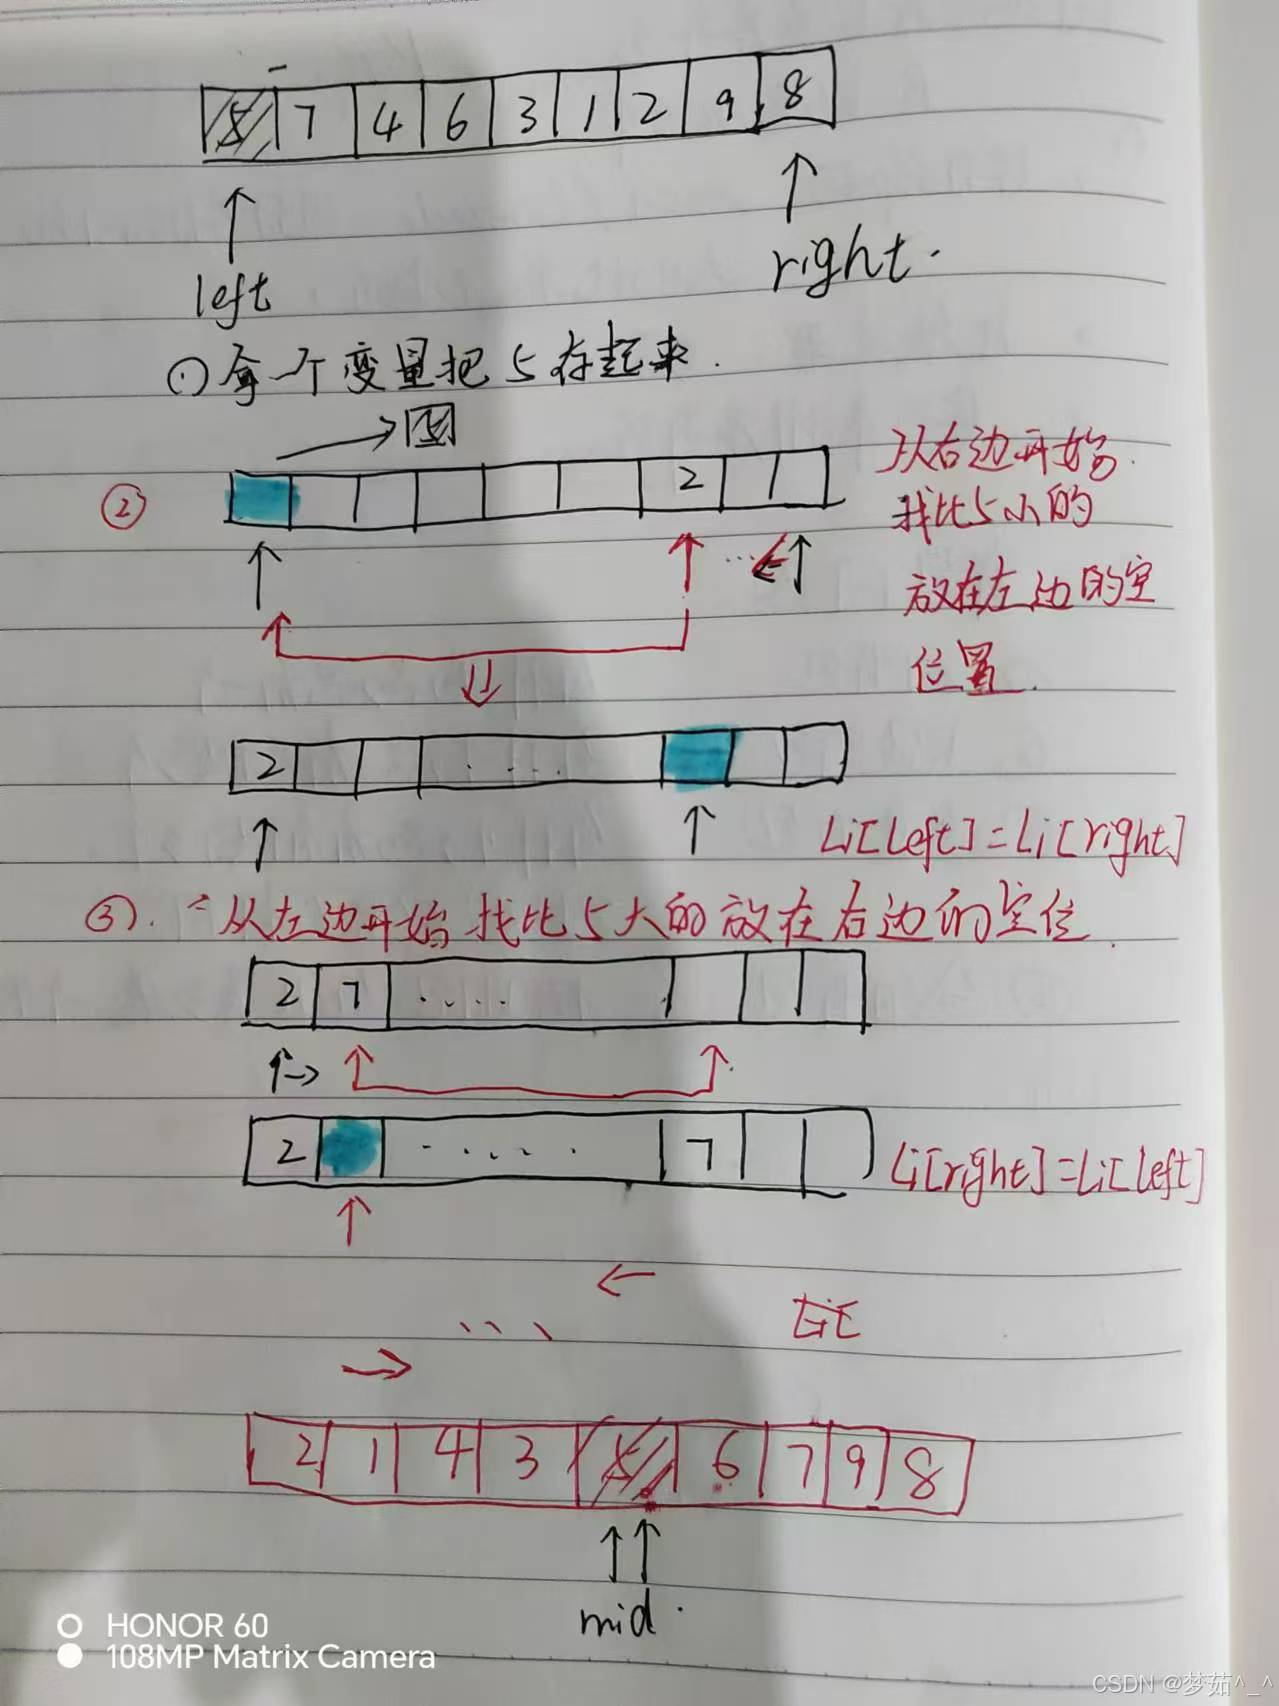 5 7 4 6 3 1 2 9 8
left
right.
① 拿一个变量把5存起来.
5
②
2
从右边开始
找比5小的
放在左边的空
位置.
2 ....
Li[left]=Li[right]
③. 从左边开始找比5大的放在右边的空位.
2 7 ....
2 ..... 7
Li[right]=Li[left]
...
2 1 4 3 5 6 7 9 8
mid.
HONOR 60
108MP Matrix Camera
CSDN @梦茹^_^